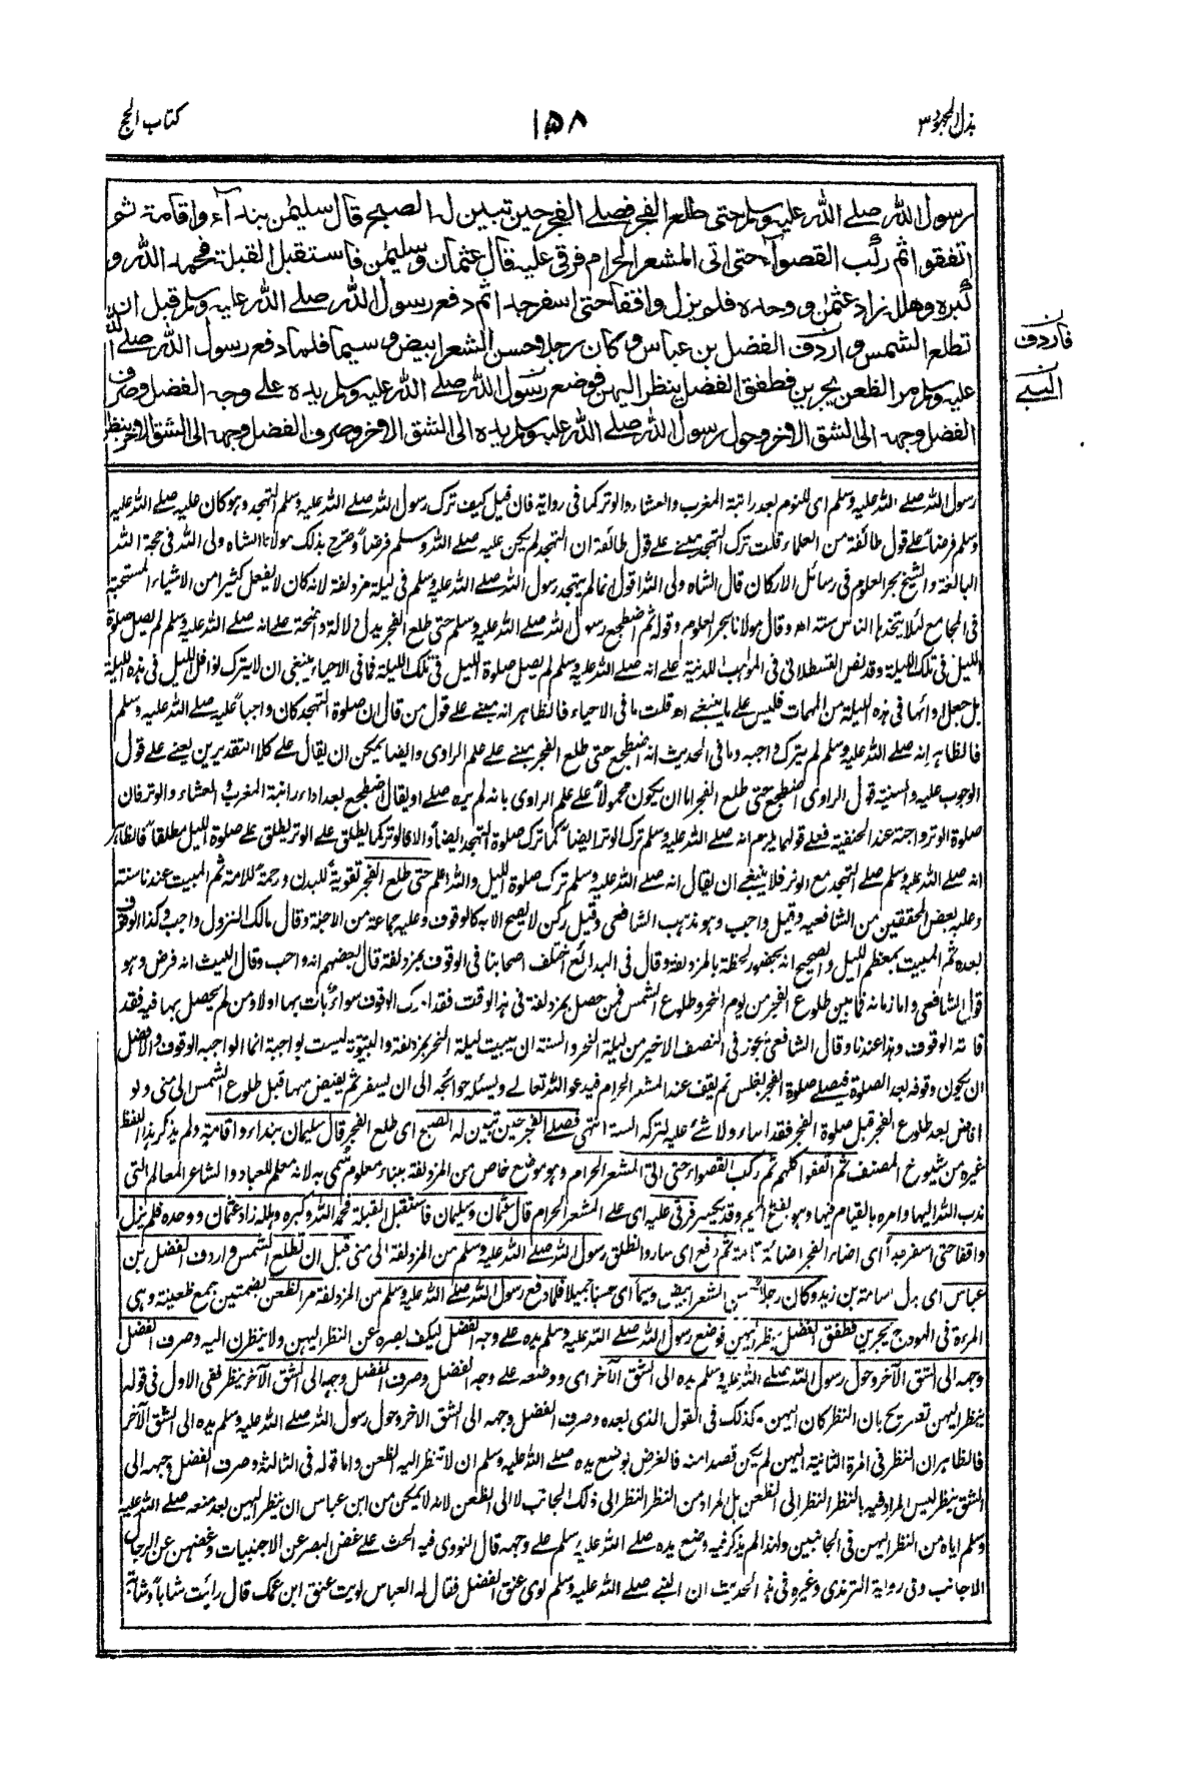 بذل المجهود ٣
١٥٨
كتاب الحج
رسول الله صلے الله عليه وسلم حتى طلع الفجر فصلے الفجر حين تبين له الصبح قال سليمٰن بنداء واقامة ثم
اتفقوا ثم ركب القصواء حتى اتى المشعر الحرام فرقى عليه قال عثمان وسليمٰن فاستقبل القبلة فحمد الله و
كبره وهلله زاد عثمٰن ووحده فلم يزل واقفا حتى اسفر جدا ثم دفع رسول الله صلے الله عليه وسلم قبل ان
تطلع الشمس واردف الفضل بن عباس وكان رجلا حسن الشعر ابيض وسيما فلما دفع رسول الله صلے الله
عليه وسلم مر الظعن يجرين فطفق الفضل ينظر اليهن فوضع رسول الله صلے الله عليه وسلم يده علے وجه الفضل وصرف
الفضل وجهه الى الشق الاخر وحول رسول الله صلے الله عليه وسلم يده الى الشق الاخر وصرف الفضل وجهه الى الشق الاخر ينظر
فاردف
النبے
رسول الله صلے الله عليه وسلم اى للنوم بعد راتبة المغرب والعشاء والوتر كما فى رواية فان قيل كيف ترك رسول الله صلے الله عليه وسلم التهجد وهو كان عليه صلے الله عليه
وسلم فرضاً علے قول طائفة من العلماء قلت ترك التهجد مبنے علے قول طائفة ان التهجد لم يكن عليه صلے الله وسلم فرضاً وصرح بذلك مولانا الشاه ولى الله فى حجة الله
البالغة والشيخ بحر العلوم فى رسائل الاركان قال الشاه ولى الله اقول انما لم يتهجد رسول الله صلے الله عليه وسلم فى ليلة مزدلفة لانه كان لا يفعل كثيرا من الاشياء المستحبة
فى المجامع لئلا يتخذها الناس سنة اهـ وقال مولانا بحر العلوم وقوله ثم اضطجع رسول الله صلے الله عليه وسلم حتى طلع الفجر يدل دلالة واضحة علے انه صلے الله عليه وسلم لم يصل صلوة
الليل فى تلك الليلة وقد نص القسطلانى فى المواهب اللدنية علے انه صلے الله عليه وسلم لم يصل صلوة الليل فى تلك الليلة فما فى الاحياء ينبغى ان لا يترك نوافل الليل فى هذه الليلة
بل جعل دائها فى هذه الليلة من المهمات فليس علے ما ينبغے اهـ قلت ما فى الاحياء فالظاهر انه مبنے علے قول من قال ان صلوة التهجد كان واجباً عليه صلے الله عليه وسلم
فالظاهر انه صلے الله عليه وسلم لم يترك واجبه وما فى الحديث انه اضطجع حتى طلع الفجر مبنے علے علم الراوى وايضا يمكن ان يقال علے كلا التقديرين يعنے علے قول
الوجوب عليه والسنية قول الراوى اضطجع حتى طلع الفجر اما ان يكون محمولاً علے علم الراوى بانه لم يره صلے او يقال اضطجع بعد اداء راتبة المغرب والعشاء والوتر فان
صلوة الوتر واجبة عند الحنفية فعلے قولهم يلزم انه صلے الله عليه وسلم ترك الوتر ايضاً كما ترك صلوة التهجد ايضاً والا فالوتر كما يطلق علے الوتر يطلق علے صلوة الليل مطلقاً فالظاهر
انه صلے الله عليه وسلم صلے التهجد مع الوتر فلا ينبغے ان يقال انه صلے الله عليه وسلم ترك صلوة الليل والله اعلم حتى طلع الفجر تقوية للبدن ورحمة للامة ثم المبيت عندنا سنة
وعليه بعض المحققين من الشافعية وقيل واجب وهو مذهب الشافعى وقيل ركن لا يصح الا به كالوقوف وعليه جماعة من الاجلة وقال مالك النزول واجب وكذا الوقوف
بعده ثم المبيت بمعظم الليل والصحيح انه بحضور لحظة بالمزدلفة وقال فى البدائع اختلف اصحابنا فى الوقوف بمزدلفة قال بعضهم انه واجب وقال الليث انه فرض وهو
قول الشافعى واما زمانه فما بين طلوع الفجر من يوم النحر وطلوع الشمس فمن حصل بمزدلفة فى هذا الوقت فقد ادرك الوقوف سواء بات بها او لا ومن لم يحصل بها فيه فقد
فاته الوقوف وهذا عندنا وقال الشافعى يجوز فى النصف الاخير من ليلة النحر والسنة ان يبيت ليلة النحر بمزدلفة والبيتوتة ليست بواجبة انما الواجبة الوقوف والافضل
ان يكون وقوفه بعد الصلوة فيصلے صلوة الفجر بغلس ثم يقف عند المشعر الحرام فيدعو الله تعالے ويسئله حوائجه الى ان يسفر ثم يفيض منها قبل طلوع الشمس الى منى ولو
افاض بعد طلوع الفجر قبل صلوة الفجر فقد اساء ولا شئ عليه لتركه السنة انتهى فصلے الفجر حين تبين له الصبح اى طلع الفجر قال سليمان بنداء واقامة ولم يذكر هذا اللفظ
غيره من شيوخ المصنف ثم اتفقوا كلهم ثم ركب القصواء حتى اتى المشعر الحرام وهو موضع خاص من المزدلفة ببناء معلوم سمى به لانه معلم للعباد والشاعر المعالم التى
ندب الله اليها وامره بالقيام فيها وهو بفتح الميم وقد يكسر فرقى عليه اى علے المشعر الحرام قال عثمان وسليمان فاستقبل القبلة فحمد الله وكبره وهلله زاد عثمان ووحده فلم يزل
واقفا حتى اسفر جداً اى اضاء الفجر اضائة تامة ثم دفع اى سار وانطلق رسول الله صلے الله عليه وسلم من المزدلفة الى منى قبل ان تطلع الشمس واردف الفضل بن
عباس اى بدل اسامة بن زيد وكان رجلاً حسن الشعر ابيض وسيماً اى حسنا جميلا فلما دفع رسول الله صلے الله عليه وسلم من المزدلفة مر الظعن بضمتين جمع ظعينة وهى
المرءة فى الهودج يجرين فطفق الفضل ينظر اليهن فوضع رسول الله صلے الله عليه وسلم يده علے وجه الفضل ليكف بصره عن النظر اليهن ولا ينظرن اليه وصرف الفضل
وجهه الى الشق الآخر وحول رسول الله صلے الله عليه وسلم يده الى الشق الآخر اى ووضعه علے وجه الفضل وصرف الفضل وجهه الى الشق الآخر ينظر ففى الاول فى قوله
ينظر اليهن تصريح بان النظر كان اليهن وكذلك فى القول الذى بعده وصرف الفضل وجهه الى الشق الاخر وحول رسول الله صلے الله عليه وسلم يده الى الشق الآخر
فالظاهر ان النظر فى المرة الثانية اليهن لم يكن قصدا منه فالغرض بوضع يده صلے الله عليه وسلم ان لا تنظر اليه الظعن واما قوله فى الثالثة وصرف الفضل وجهه الى
الشق ينظر ليس المراد فيه بالنظر النظر الى الظعن بل المراد من النظر النظر الى ذلك الجانب لا الى الظعن لانه لا يمكن من ابن عباس ان ينظر اليهن بعد منعه صلے الله عليه
وسلم اياه من النظر اليهن فى الجانبين ولهذا لم يذكر فيه وضع يده صلے الله عليه وسلم علے وجهه قال النووى فيه الحث علے غض البصر عن الاجنبيات وغضهن عن الرجال
الاجانب وفى رواية الترمذى وغيره فى هذا الحديث ان النبے صلے الله عليه وسلم لوى عنق الفضل فقال له العباس لويت عنق ابن عمك قال رائت شاباً وشابة